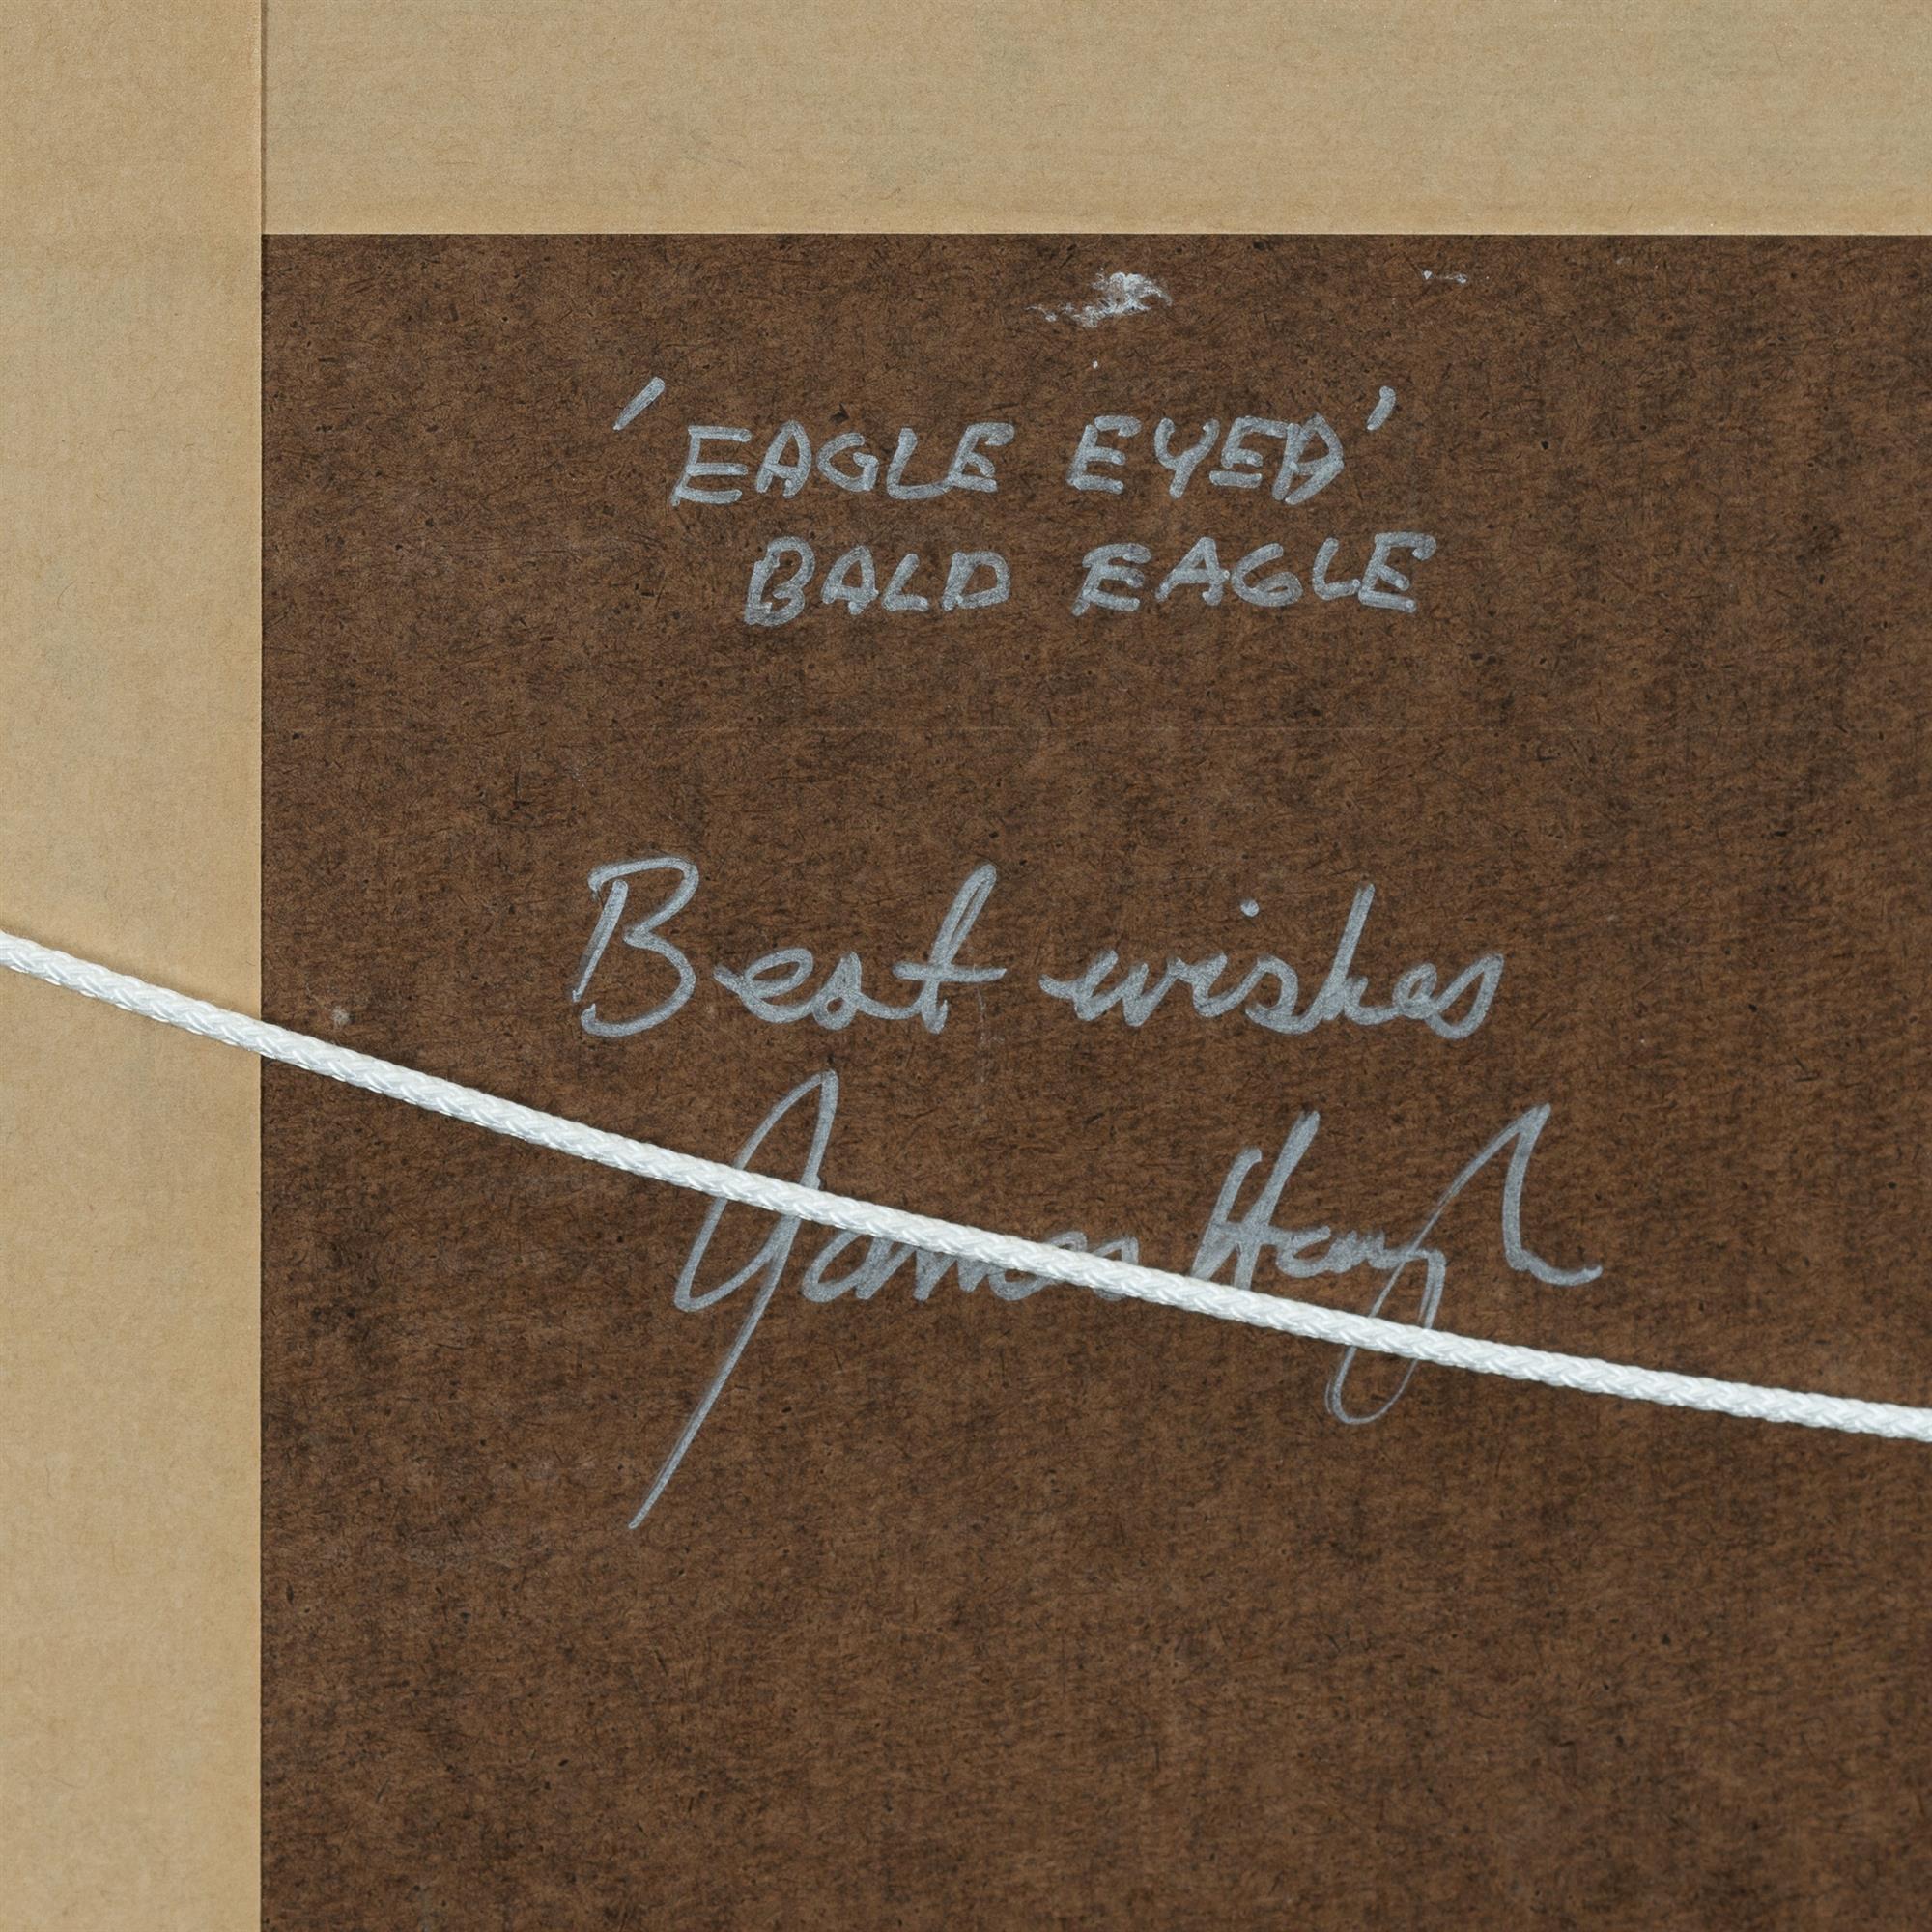 'EAGLE EYED'
BALD EAGLE
Best wishes
James Hough